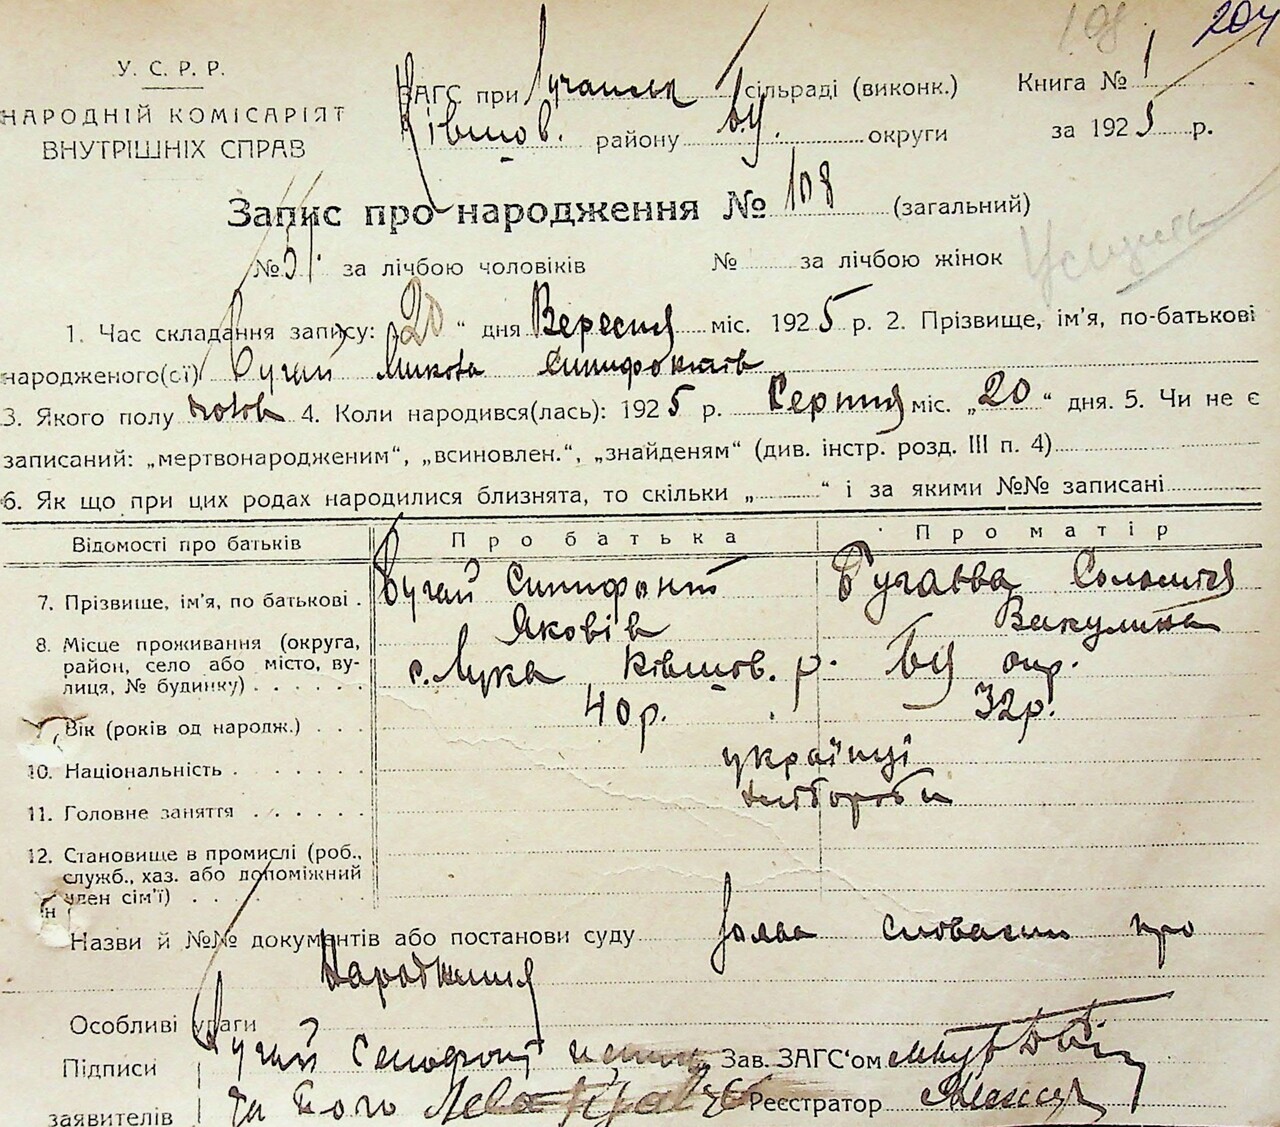 108 204
У. С. Р. Р.
НАРОДНІЙ КОМІСАРІЯТ
ВНУТРІШНІХ СПРАВ
ЗАГС при Лучанськ сільраді (виконк.) Книга № 1
Ківшов. району Б.Ц. округи за 1925 р.
Запис про народження № 108 (загальний)
№ 51 за лічбою чоловіків № за лічбою жінок
1. Час складання запису: „20“ дня Вересня міс. 1925 р. 2. Прізвище, ім’я, по-батькові
народженого(ої) Бугай Микола
3. Якого полу чолов 4. Коли народився(лась): 1925 р. Серпня міс. „20“ дня. 5. Чи не є
записаний: „мертвонародженим“, „всиновлен.“, „знайденям“ (див. інстр. розд. III п. 4)
6. Як що при цих родах народилися близнята, то скільки „ “ і за якими №№ записані
Відомості про батьків Про батька Про матір
7. Прізвище, ім’я, по батькові . Бугай Бугаєва Соломія
Яковів Вакулина
8. Місце проживання (округа, район, село або місто, вулиця, № будинку) с. Лука Ківшов. р. БЦ окр.
9. Вік (років од народж.) 40 р. 32 р.
10. Національність українці
11. Головне заняття хлібороби
12. Становище в промислі (роб.,
служб., хаз. або допоміжний
член сім’ї)
Назви й №№ документів або постанови суду Заява словесна про
народження
Особливі уваги
Підписи Бугай Зав. ЗАГС‘ом
заявителів та його Реєстратор